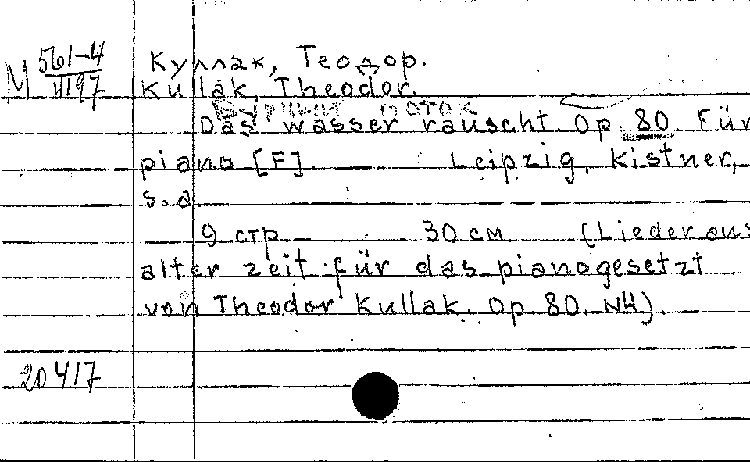 М 561-4
Куллак, Теодор.
Kullak, Theodor.
Das wasser rauscht Op 80. Für
piano [F]. Leipzig, Kistner,
s.a
9 стр 30 см (Lieder aus
alter zeit für das piano gesetzt
von Theodor Kullak. Op 80. N4).
20417